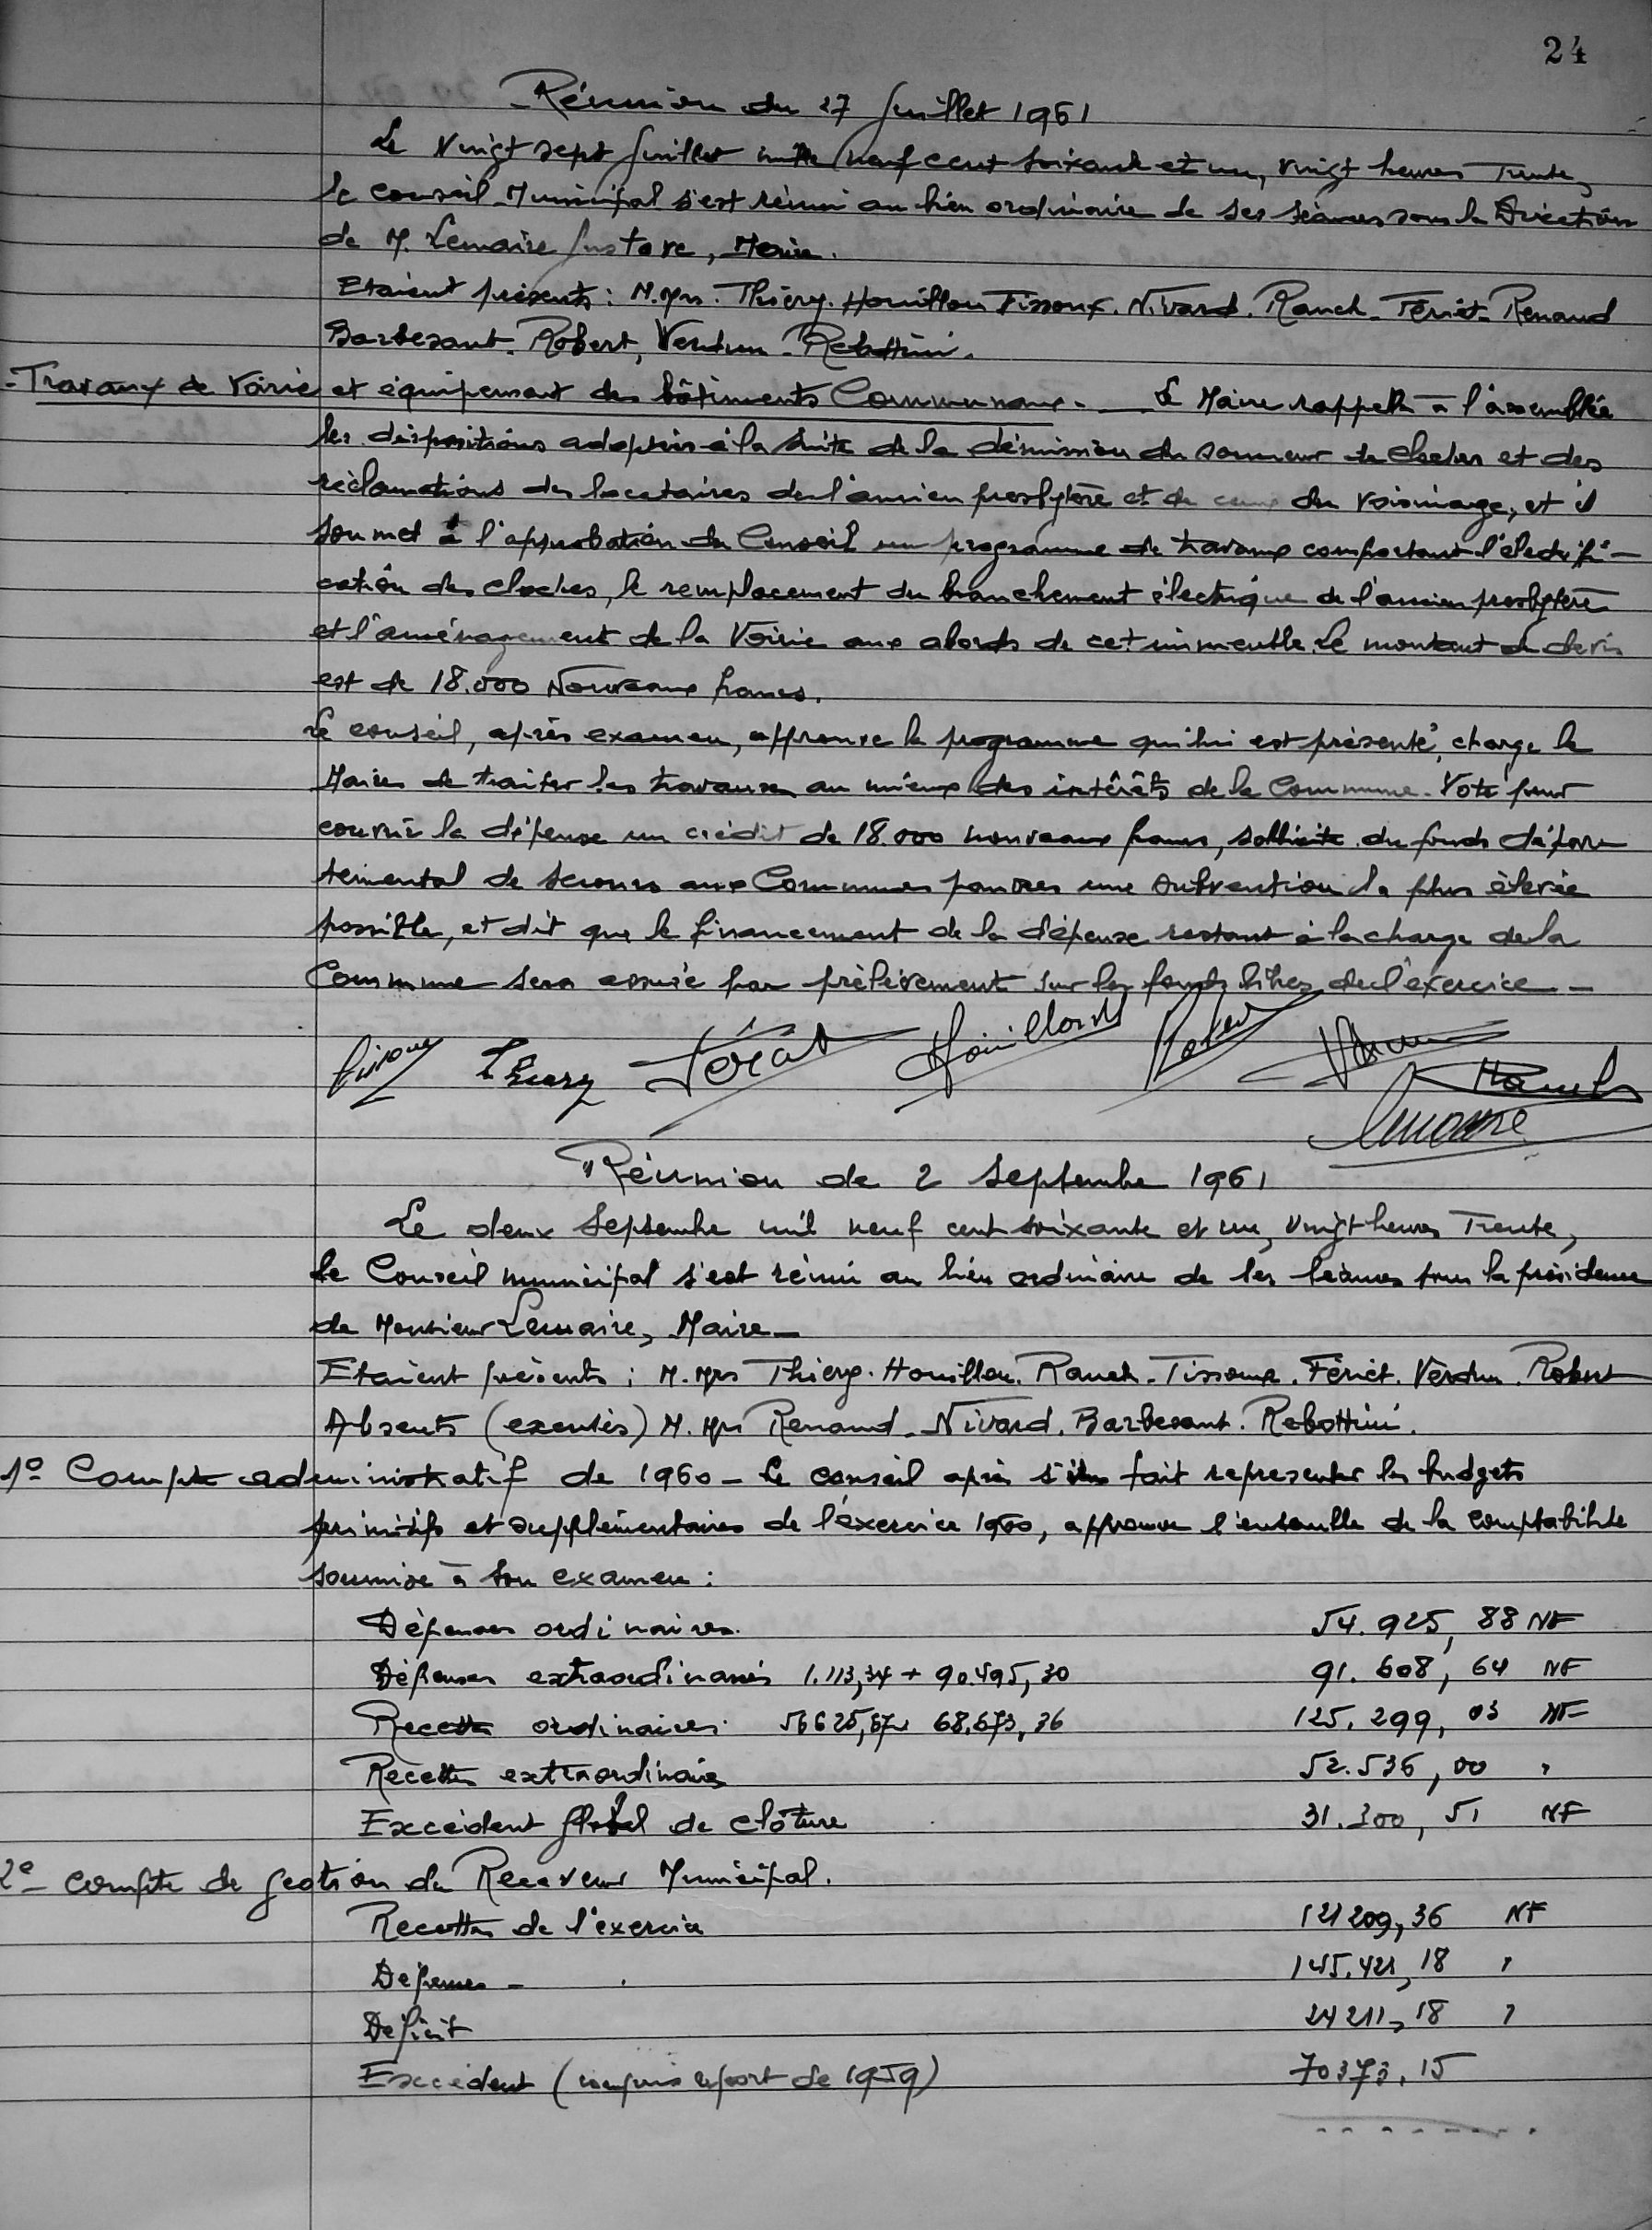 24
Réunion du 27 Juillet 1961
Le Vingt sept Juillet mille neuf cent soixante et un, vingt heures Trente,
le conseil Municipal s'est réuni au lieu ordinaire de ses séances sous la Direction
de M. Lemaire Gustave, Maire.
Etaient présents : M.Mrs. Thiery. Houillon Tissoux. Nivard. Rauch. Fériet. Renaud
Barbesant. Robert, Verdun. Rebottini.
- Travaux de Voirie et équipement des bâtiments Communaux. — Le Maire rappelle à l'assemblée
les dispositions adoptées à la suite de la démission du sonneur de cloches et des
réclamations des locataires de l'ancien presbytère et de ceux du voisinage, et il
soumet à l'approbation du Conseil un programme de travaux comportant l'électrifi-
cation des cloches, le remplacement du branchement électrique de l'ancien presbytère
et l'aménagement de la Voirie aux abords de cet immeuble. Le montant du devis
est de 18.000 Nouveaux francs.
Le conseil, après examen, approuve le programme qui lui est présenté, charge le
Maire de traiter les travaux au mieux des intérêts de la Commune. Vote pour
couvrir la dépense un crédit de 18.000 nouveaux francs, sollicite du fonds dépar
temental de secours aux Communes pauvres une subvention la plus élevée
possible, et dit que le financement de la dépense restant à la charge de la
Commune sera assurée par prélèvement sur les fonds libres de l'exercice -
Tissoux Thiery Fériet Houillon Robert Verdun
Rauch
Lemaire
Réunion de 2 Septembre 1961
Le deux Septembre mil neuf cent soixante et un, vingt heures Trente,
le Conseil municipal s'est réuni au lieu ordinaire de ses séances sous la présidence
de Monsieur Lemaire, Maire -
Etaient présents : M.Mrs Thiery. Houillon. Rauch. Tissoux. Fériet. Verdun. Robert
Absents (excusés) M.Mrs Renaud. Nivard. Barbesant. Rebottini.
1º Compte administratif de 1960 - Le conseil après s'être fait representer les budgets
primitifs et supplémentaires de l'éxercice 1960, approuve l'ensemble de la comptabilité
soumise à son examen :
Dépenses ordinaires. 54.925,88 NF
Dépenses extraordinaires 1.113,34 + 90.495,30 91.608,64 NF
Recettes ordinaires. 56625,67 68.673,36 125.299,03 NF
Recettes extraordinaires 52.536,00 "
Excédent global de clôture 31.300,51 NF
2º - compte de gestion du Receveur Municipal.
Recettes de l'exercice 121209,36 NF
Dépenses - . 145.421,18 "
Deficit 24211,18 "
Excédent (compris report de 1959) 70373,15